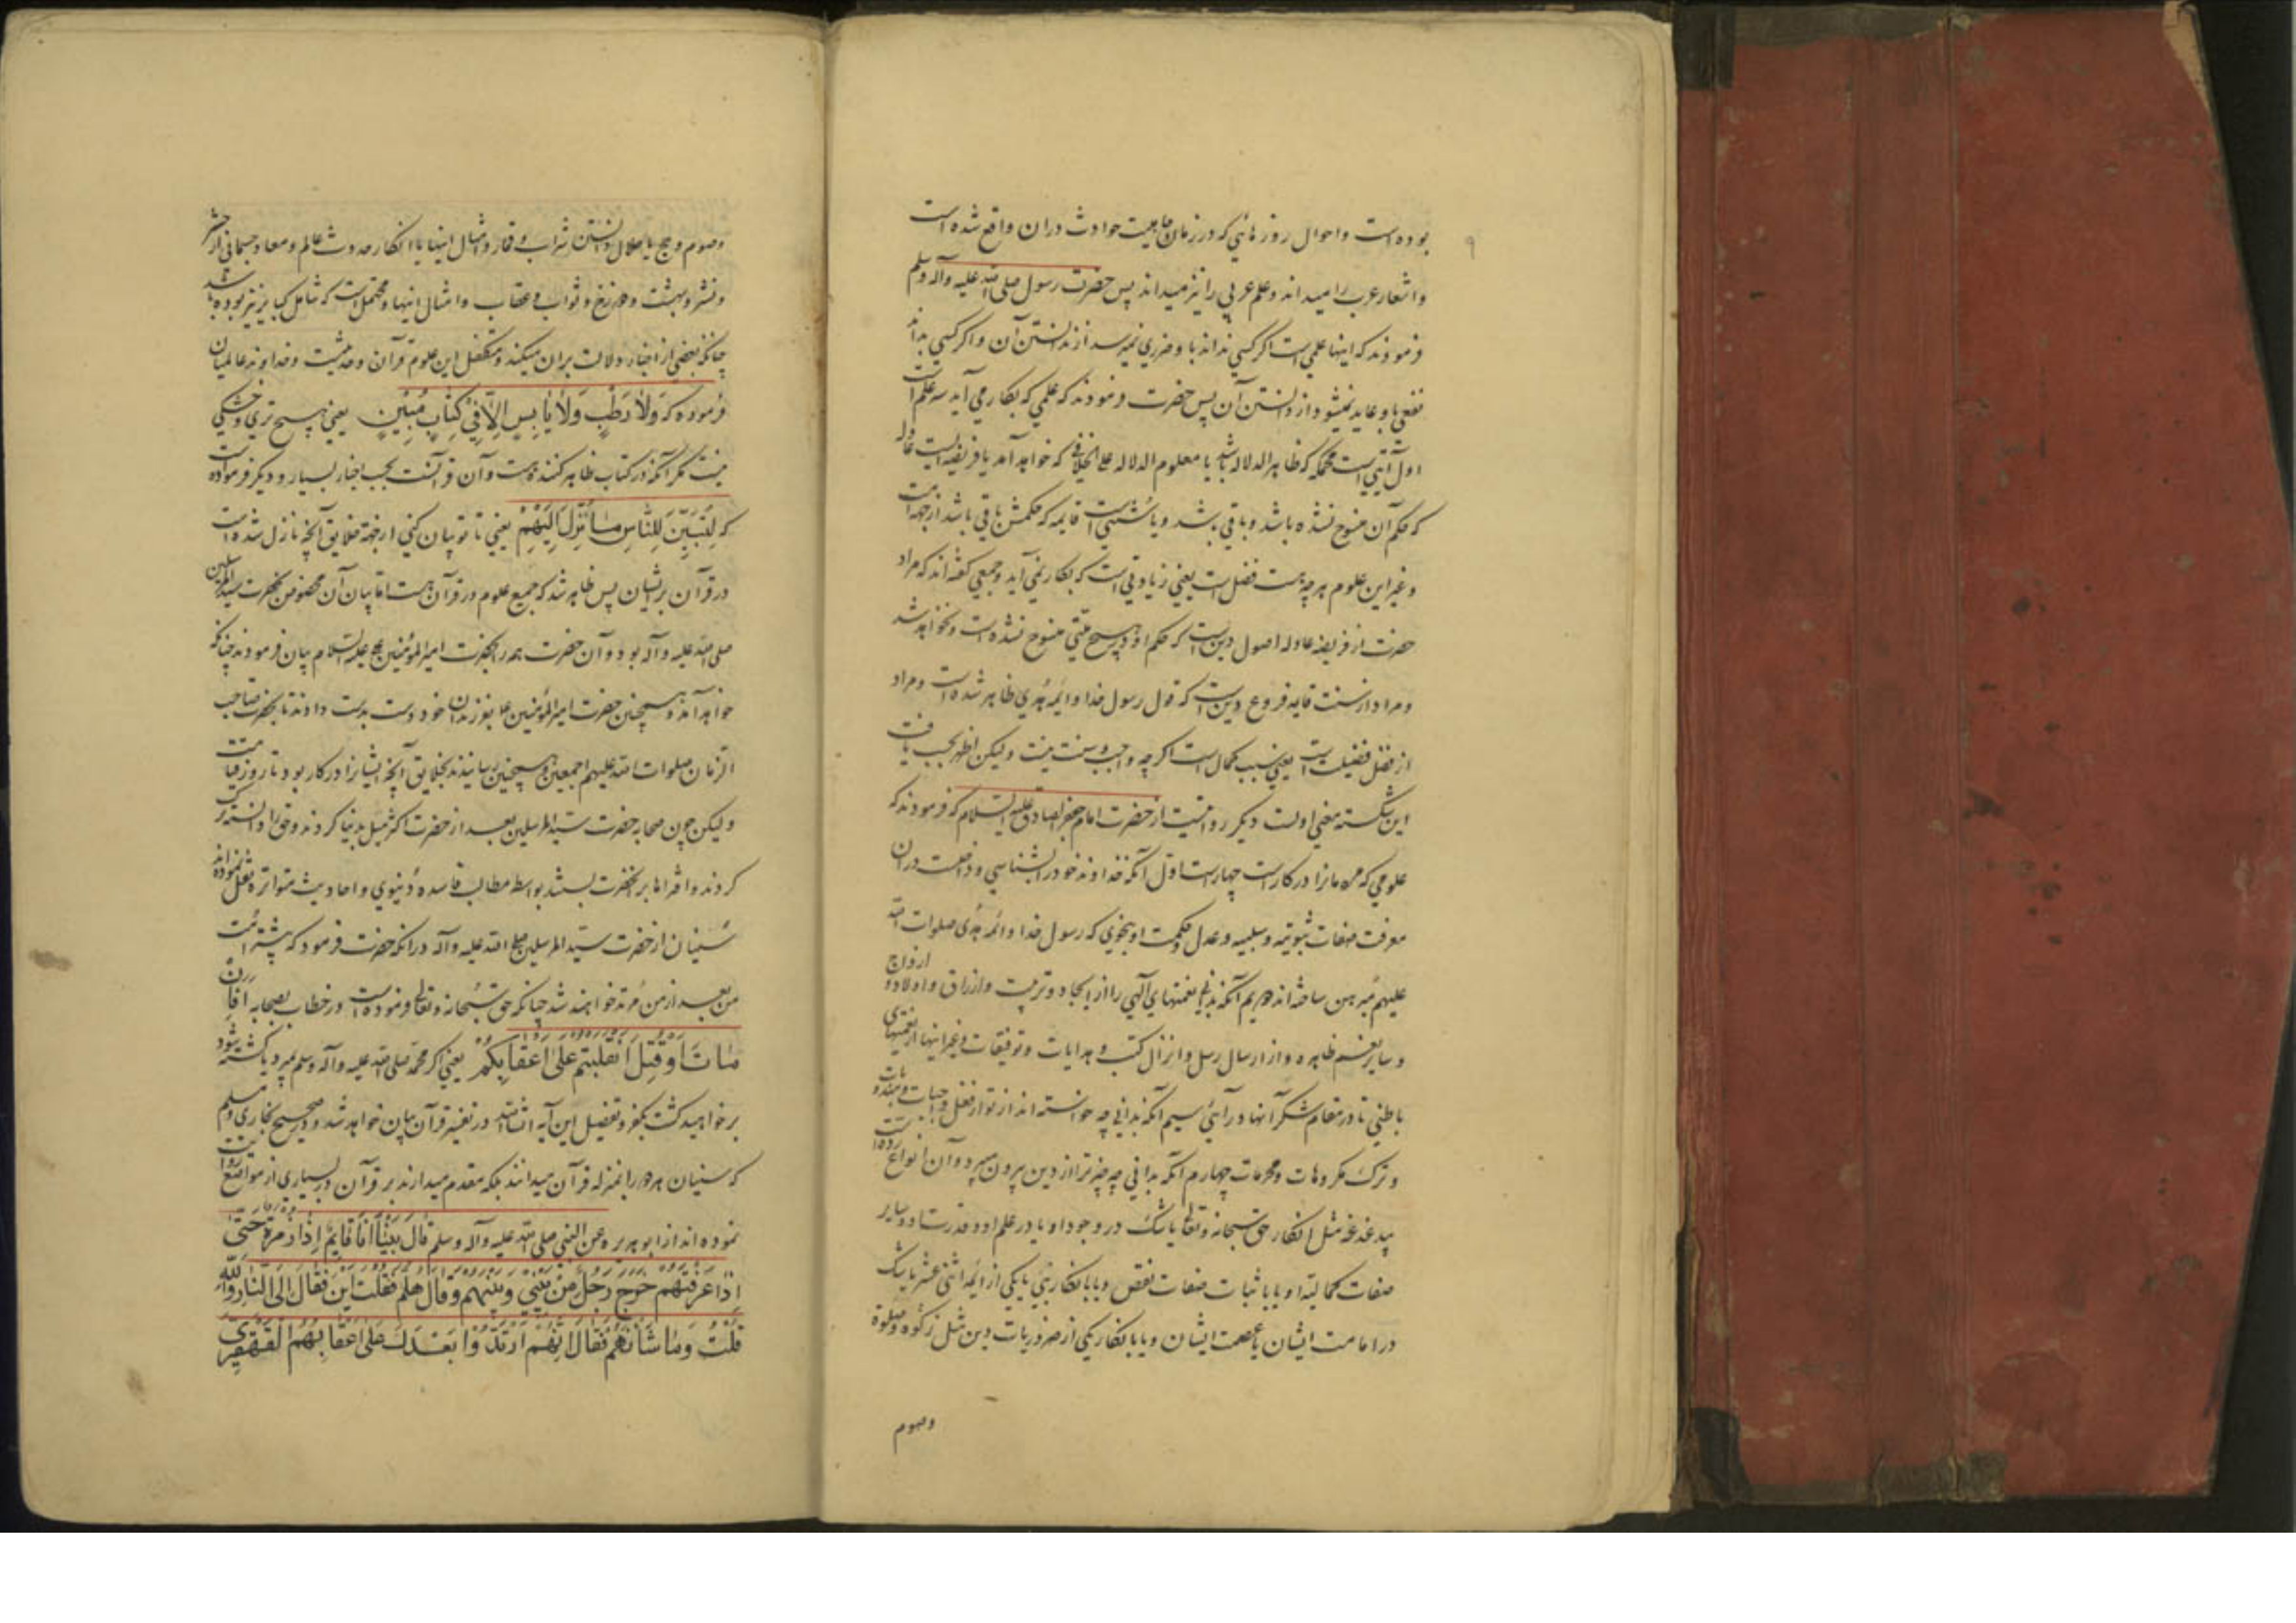 ۹
بوده است واحوال روزهائی که در زمان جاهلیت حوادث در ان واقع شده است
واشعار عرب را میداند وعلم عربی را نیز میداند پس حضرت رسول صلی الله علیه وآله وسلم
فرمودند که اینها علمی است اگر کسی نداند باو ضرری نمیرسد از ندانستن آن واگر کسی بداند
نفعی باو عاید نمیشود از دانستن آن پس حضرت فرمودند که علمی که بکار می آید سه علم است
اول آیتی است محکمه که ظاهر الدلاله باشد یا معلوم الدلاله علی الخلافی که خواهد آمد یا فریضه ایست عادله
که حکم آن منسوخ نشده باشد وباقی باشد ویا سنتی است قایمه که حکمش باقی باشد از جهة امت
وغیر این علوم هرچه هست فضل است یعنی زیادتی است که بکار نمی آید وجمعی گفته اند که مراد
حضرت از فریضه عادله اصول دین است که حکم او در هیچ ملتی منسوخ نشده است ونخواهد شد
ومراد از سنت قایمه فروع دین است که قول رسول خدا وائمه هدی ظاهر شده است ومراد
از فضل فضیلت است یعنی سبب کمال است اگرچه واجب وسنت نیست ولیکن اظهر بحسب یافت
این شکسته معنی اولست دیگر روایتست از حضرت امام جعفر الصادق علیه السلام که فرمودند که
علومی که مردمانرا در کار است چهار است اول آنکه خداوند خود را بشناسی وداخلست در ان
معرفت صفات ثبوتیه وسلبیه وعدل وحکمت او بنحوی که رسول خدا وائمه هدی صلوات الله
علیهم مبرهن ساخته اند دویم آنکه بدانی نعمتهای الهی را از ایجاد وتربیت وارزاق واولاد وازواج
وسایر نعم ظاهره واز ارسال رسل وانزال کتب وهدایات وتوفیقات وغیر اینها از نعمتهای
باطنی تا در مقام شکر آنها در آئی سیم آنکه بدانی چه خواسته اند از تو از فعل واجبات ومندوبات
وترک مکروهات ومحرمات چهارم آنکه بدانی چه چیز ترا از دین بیرون میبرد وآن انواع رده است
بیدغدغه مثل انکار حق سبحانه وتعالی یا شک در وجود او یا در علم او وقدرت او وسایر
صفات کمالیه او یا باثبات صفات نقص ویا بانکار نبی یا یکی از ائمه اثنی عشر یا شک
در امامت ایشان یا عصمت ایشان ویا بانکار یکی از ضروریات دین مثل زکوة وصلوة
وصوم
وصوم وحج یا حلال دانستن شراب وقمار وامثال اینها یا انکار حدوث عالم ومعاد جسمانی از حشر
ونشر وبهشت ودوزخ وثواب وعقاب وامثال اینها ومحتمل است که شامل کبایر نیز بوده باشد
چنانکه بعضی از اخبار دلالت بران میکند ومتکفل این علوم قرآن وحدیثست وخداوند عالمیان
فرموده که وَلَا رَطْبٍ وَلَا یَابِسٍ اِلَّا فِی کِتَابٍ مُبِینٍ یعنی هیچ تری وخشکی
نیست مگر آنکه در کتاب ظاهر کننده هست وآن قرآنست بحسب اخبار بسیار ودیگر فرموده است
که لِتُبَیِّنَ لِلنَّاسِ مَا نُزِّلَ اِلَیْهِمْ یعنی تا تو بیان کنی از جهة خلایق آنچه نازل شده است
در قرآن بر ایشان پس ظاهر شد که جمیع علوم در قرآن هست اما بیان آن مخصوص حضرت سید المرسلین
صلی الله علیه وآله بود وآن حضرت همه را بحضرت امیر المؤمنین علیه السلام بیان فرمودند چنانکه
خواهد آمد وهمچنین حضرت امیر المؤمنین بفرزندان خود دست بدست دادند تا بحضرت صاحب
الزمان صلوات الله علیهم اجمعین وهمچنین رسانیدند بخلایق آنچه ایشانرا در کار بود تا روز قیامت
ولیکن چون صحابه حضرت سید المرسلین بعد از حضرت اکثر میل بدنیا کردند وحق را دانسته ترک
کردند وافتراها بر انحضرت بستند بواسطه مطالب فاسده دنیوی واحادیث متواتره نقل نموده اند
سنیان از حضرت سید المرسلین صلی الله علیه وآله در انکه حضرت فرمود که بیشتر امت
من بعد از من مرتد خواهند شد چنانکه حق سبحانه وتعالی فرموده است در خطاب بصحابه اَفَاِنْ
مَاتَ اَوْ قُتِلَ انْقَلَبْتُمْ عَلٰی اَعْقَابِکُمْ یعنی اگر محمد صلی الله علیه وآله وسلم بمیرد یا کشته شود
بر خواهید گشت بکفر وتفصیل این آیه انشاء الله در تفسیر قرآن بیان خواهد شد ودر صحیح بخاری ومسلم
که سنیان هر دو را بمنزله قرآن میدانند بلکه مقدم میدارند بر قرآن در بسیاری از مواضع روایت
نموده اند از ابو هریره عن النبی صلی الله علیه وآله وسلم قَالَ بَیْنَا اَنَا قَایِمٌ اِذَا زُمْرَةٌ حَتّٰی
اِذَا عَرَفْتُهُمْ خَرَجَ رَجُلٌ مِنْ بَیْنِی وَبَیْنِهِمْ وَقَالَ هَلُمَّ فَقُلْتُ اَیْنَ فَقَالَ اِلَی النَّارِ وَاللّٰهِ
قُلْتُ وَمَا شَانُهُمْ فَقَالَ اِنَّهُمْ ارْتَدُّوا بَعْدَكَ عَلٰی اَعْقَابِهُمُ الْقَهْقَرٰی